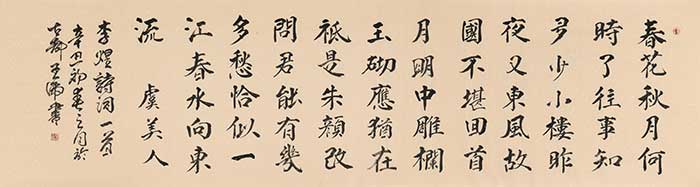 春花秋月何
時了往事知
多少小樓昨
夜又東風故
國不堪回首
月明中雕欄
玉砌應猶在
祇是朱顏改
問君能有幾
多愁恰似一
江春水向東
流 虞美人
李煜詩詞一首
辛丑初春之月於
古都王書